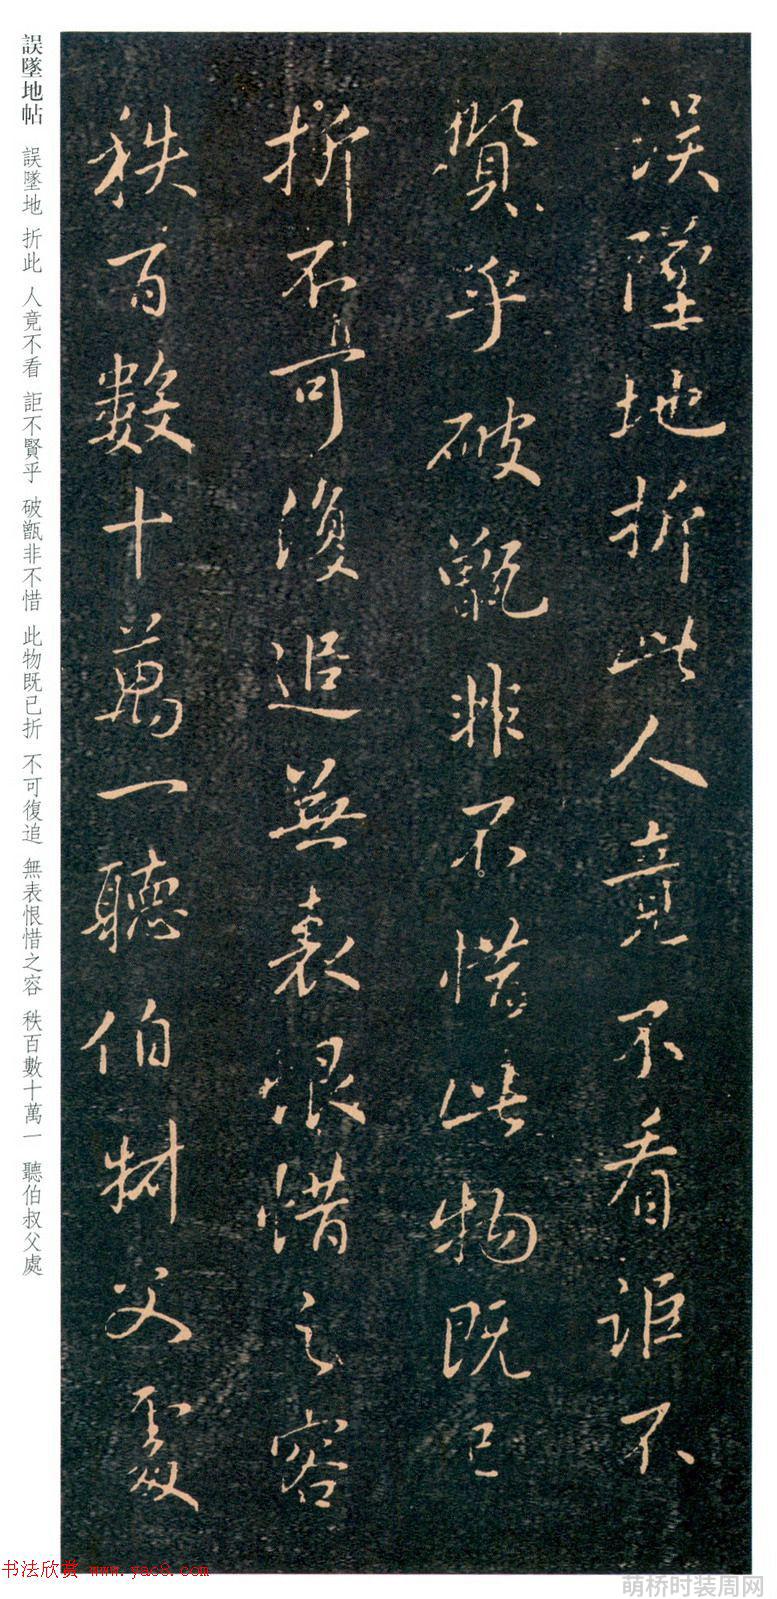 誤墜地折此人竟不看詎不
賢乎破甑非不惜此物既已
折不可復追無表恨惜之容
秩百數十萬一聽伯叔父處
誤墜地帖 誤墜地 折此 人竟不看 詎不賢乎 破甑非不惜 此物既已折 不可復追 無表恨惜之容 秩百數十萬一 聽伯叔父處
书法欣赏 www.yac8.com
萌桥时装周网